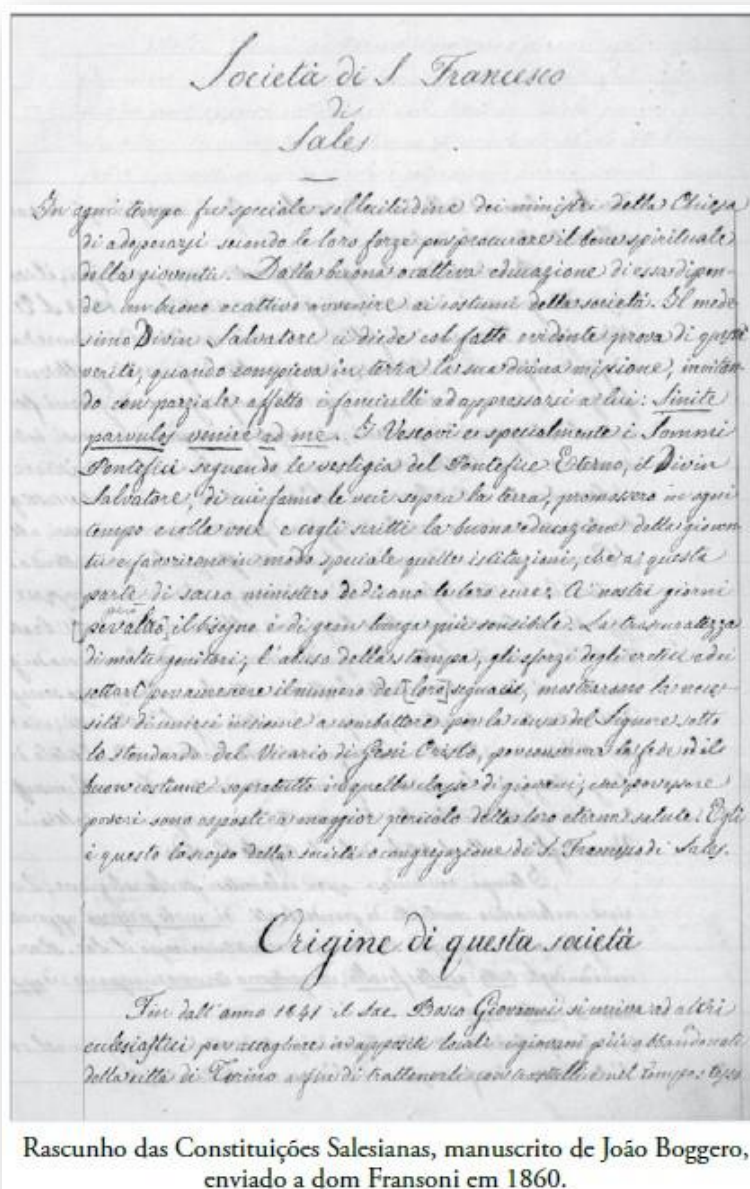 Società di S. Francesco
di
Sales
In ogni tempo fu speciale sollecitudine dei ministri della Chiesa
di adoperarsi secondo le loro forze per procurare il bene spirituale
della gioventù. Dalla buona o cattiva educazione di essa dipen-
de un buono o cattivo avvenire ai costumi della società. Il mede
simo Divin Salvatore ci diede col fatto evidente prova di questa
verità, quando compieva in terra la sua divina missione, invitan-
do con parziale affetto i fanciulli ad appressarsi a lui: Sinite
parvulos venire ad me. I Vescovi e specialmente i Sommi
Pontefici seguendo le vestigia del Pontefice Eterno, il Divin
Salvatore, di cui fanno le veci sopra la terra, promossero in ogni
tempo e colla voce e cogli scritti la buona educazione della gioven
tù e favorirono in modo speciale quelle istituzioni, che a questa
parte di sacro ministero dedicano le loro cure. A' nostri giorni
però
per altro, il bisogno è di gran lunga più sensibile. La trascuratezza
di molti genitori, l'abuso della stampa, gli sforzi degli eretici e dei
settari per accrescere il numero dei [loro] seguaci, mostrarono la neces-
sità di unirci insieme a combattere per la causa del Signore sotto
lo stendardo del Vicario di Gesù Cristo, per conservar la fede ed il
buon costume sopratutto in quella classe di giovani, che per essere
poveri sono esposti a maggior pericolo della loro eterna salute. Egli
è questo lo scopo della società o congregazione di S. Francesco di Sales.
Origine di questa società
Fin dall'anno 1841 il Sac. Bosco Giovanni si univa ad altri
ecclesiastici per accogliere in appositi locali i giovani più abbandonati
della città di Torino a fine di trattenerli con trastulli e nel tempo stesso
Rascunho das Constituições Salesianas, manuscrito de João Boggero,
enviado a dom Fransoni em 1860.